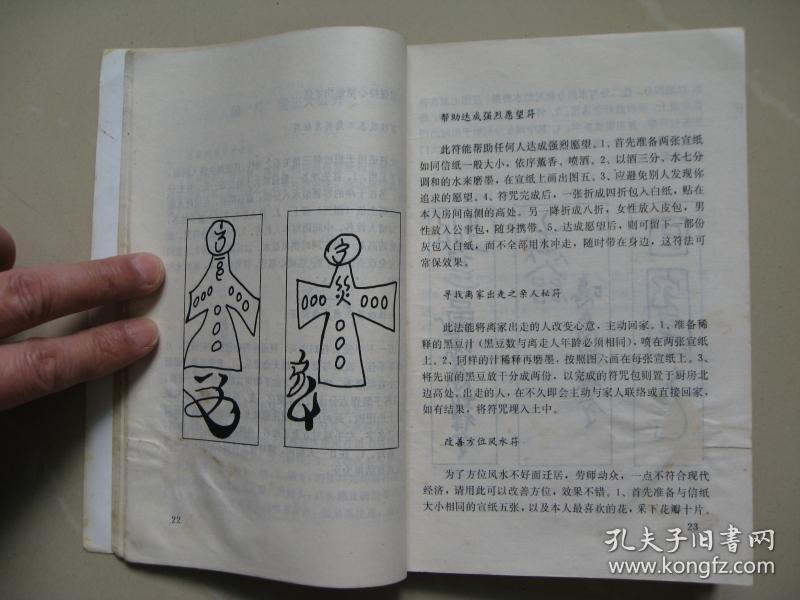 22
帮助达成强烈愿望符
此符能帮助任何人达成强烈愿望。1、首先准备两张宣纸
如同信纸一般大小，依序薰香、喷酒。2、以酒三分、水七分
调和的水来磨墨，在宣纸上画出图五。3、应避免别人发现你
追求的愿望。4、符咒完成后，一张折成四折包入白纸，贴在
本人房间南侧的高处。另一降折成八折，女性放入皮包，男
性放入公事包，随身携带。5、达成愿望后，则可留下一部份
灰包入白纸，而不全部用水冲走，随时带在身边，这符法可
常保效果。
寻找离家出走之亲人秘符
此法能将离家出走的人改变心意，主动回家。1、准备稀
释的黑豆汁（黑豆数与离走人年龄必须相同），喷在两张宣纸
上。2、同样的汁稀释再磨墨，按照图六画在每张宣纸上。3、
将先前的黑豆放干分成两份，以完成的符咒包则置于厨房北
边高处。出走的人，在不久即会主动与家人联络或直接回家，
如有结果，将符咒埋入土中。
改善方位风水符
为了方位风水不好面迁居，劳师动众，一点不符合现代
经济，请用此可以改善方位，效果不错。1、首先准备与信纸
大小相同的宣纸五张，以及本人最喜欢的花，采下花瓣十片。
23
孔夫子旧书网
www.kongfz.com